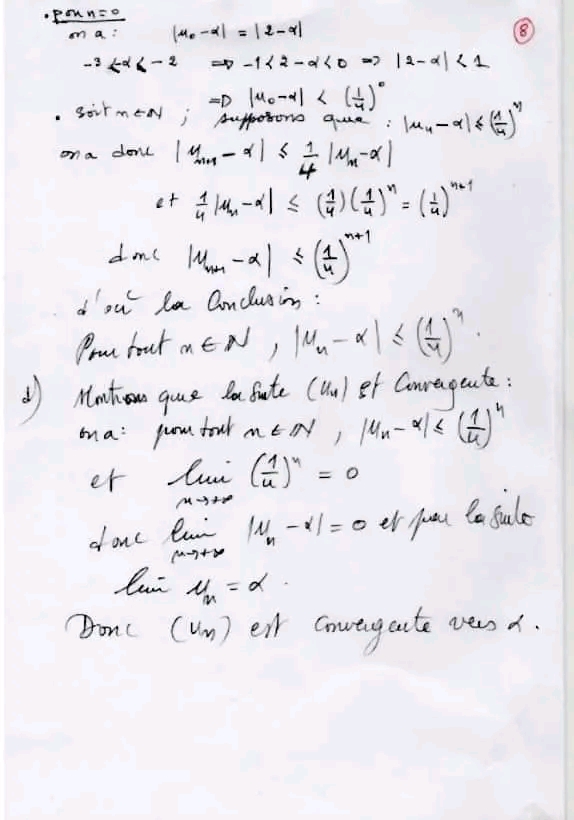 . pour n=0
8
on a : |u₀-α| = |2-α|
-3 < -α < -2 ⇒ -1 < 2-α < 0 ⇒ |2-α| < 1
⇒ |u₀-α| < (1/4)⁰
. soit n∈ℕ ; supposons que : |uₙ-α| ≤ (1/4)ⁿ
on a donc |uₙ₊₁-α| ≤ 1/4 |uₙ-α|
et 1/4 |uₙ-α| ≤ (1/4)(1/4)ⁿ = (1/4)ⁿ⁺¹
donc |uₙ₊₁-α| ≤ (1/4)ⁿ⁺¹
d'où la Conclusion :
Pour tout n∈ℕ, |uₙ-α| ≤ (1/4)ⁿ.
d) Montrons que la suite (uₙ) est Convergente :
on a : pour tout n∈ℕ, |uₙ-α| ≤ (1/4)ⁿ
et lim (1/4)ⁿ = 0
n→+∞
donc lim |uₙ-α| = 0 et par la suite
n→+∞
lim uₙ = α.
Donc (uₙ) est Convergente vers α.